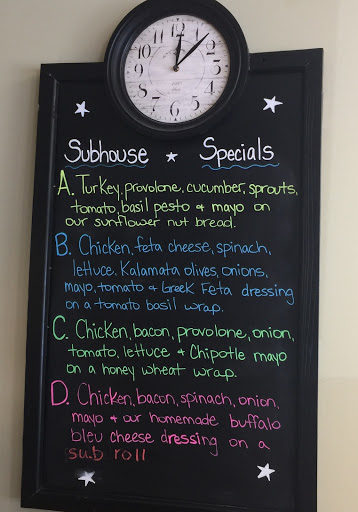 12
1
2
3
4
5
6
7
8
9
10
11
Subhouse ★ Specials
A. Turkey, provolone, cucumber, sprouts,
tomato, basil pesto + mayo on
our sunflower nut bread.
B. Chicken, feta cheese, spinach,
lettuce. Kalamata olives, onions,
mayo, tomato + Greek Feta dressing
on a tomato basil wrap.
C. Chicken, bacon, provolone, onion,
tomato, lettuce + Chipotle mayo
on a honey wheat wrap.
D. Chicken, bacon, spinach, onion,
mayo + our homemade buffalo
bleu cheese dressing on a
sub roll